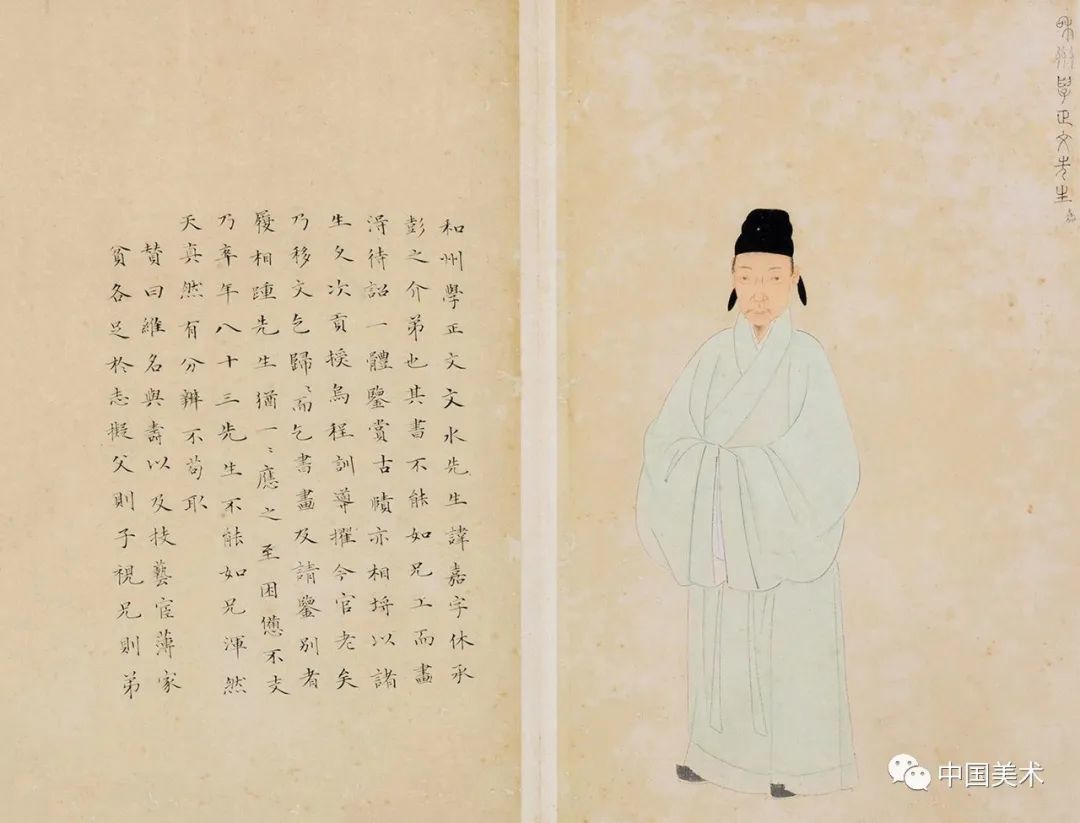 和州學正文先生嘉
和州學正文文水先生諱嘉字休承
彭之介弟也其書不能如兄工而畫
淂待詔一體鑒賞古蹟亦相埒以諸
生久次貢授烏程訓導擢今官老矣
乃移文乞歸〻而乞書畫及請鑒別者
履相踵先生猶一〻應之至困憊不支
乃卒年八十三先生不能如兄渾然
天真然有分辨不苟取
贊曰維名與壽以及技藝宦薄家
貧各足於志擬父則子視兄則弟
中国美术